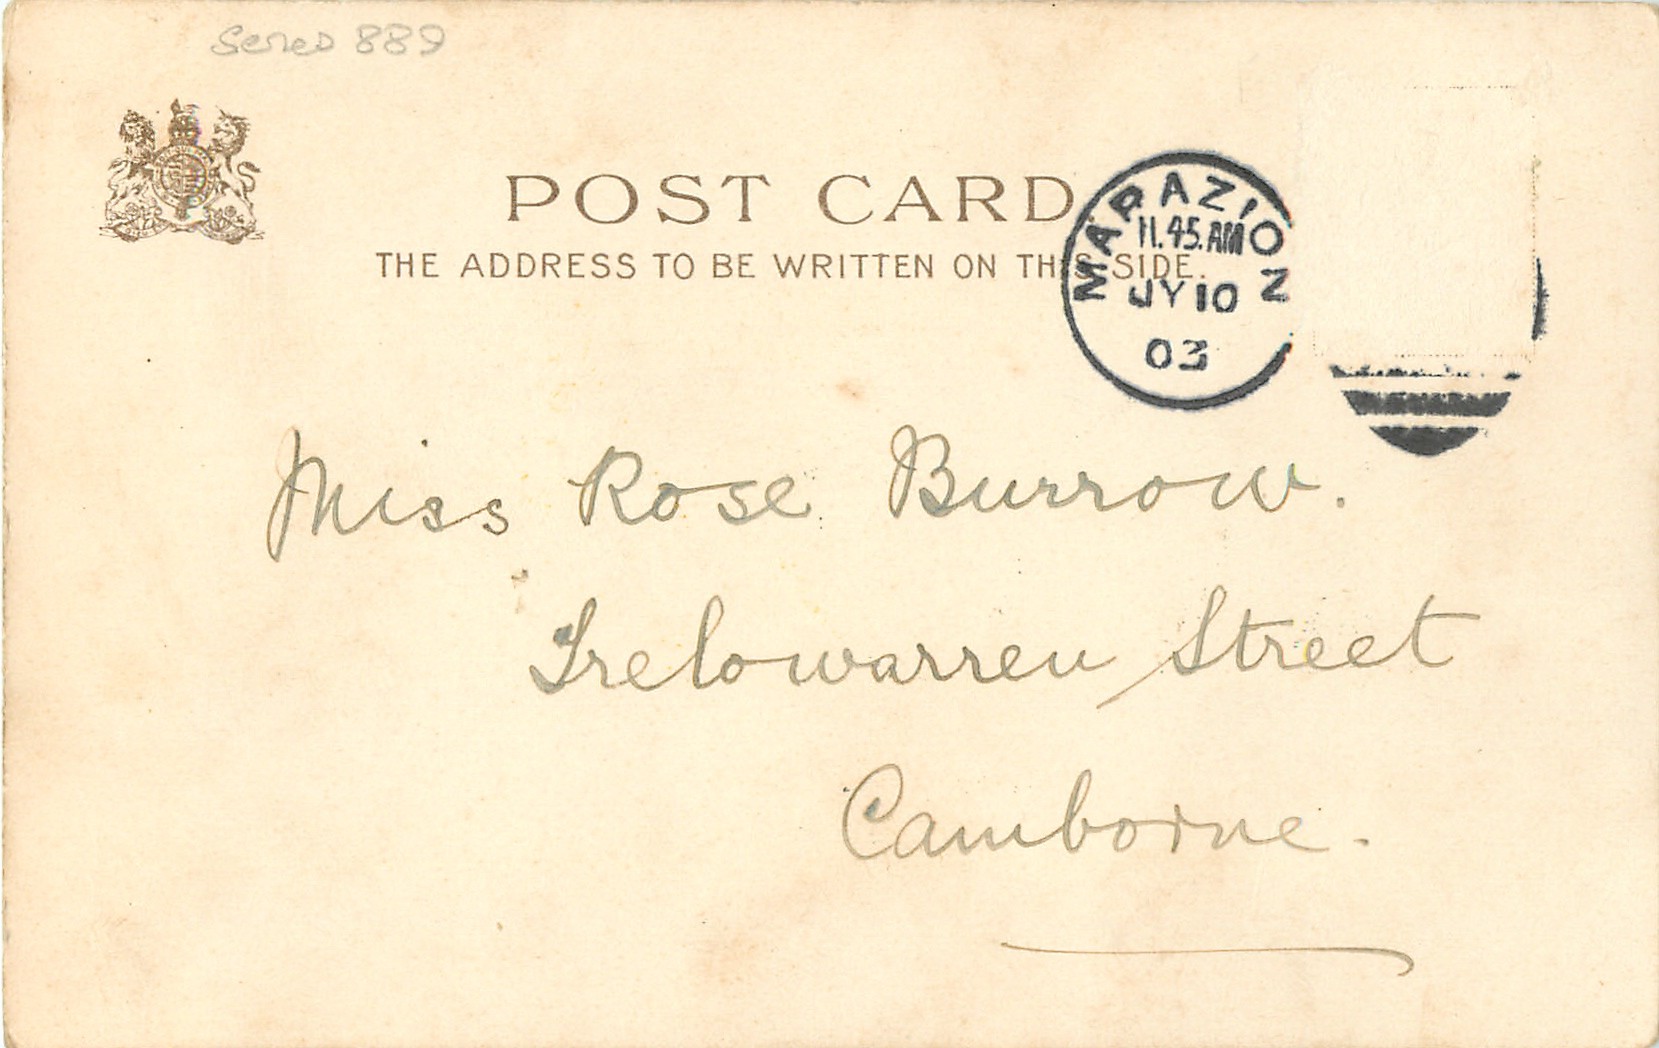 Series 889
POST CARD
THE ADDRESS TO BE WRITTEN ON THIS SIDE.
MARAZION
11.45.AM
JY 10
03
Miss Rose Burrow.
Trelowarren Street
Camborne.